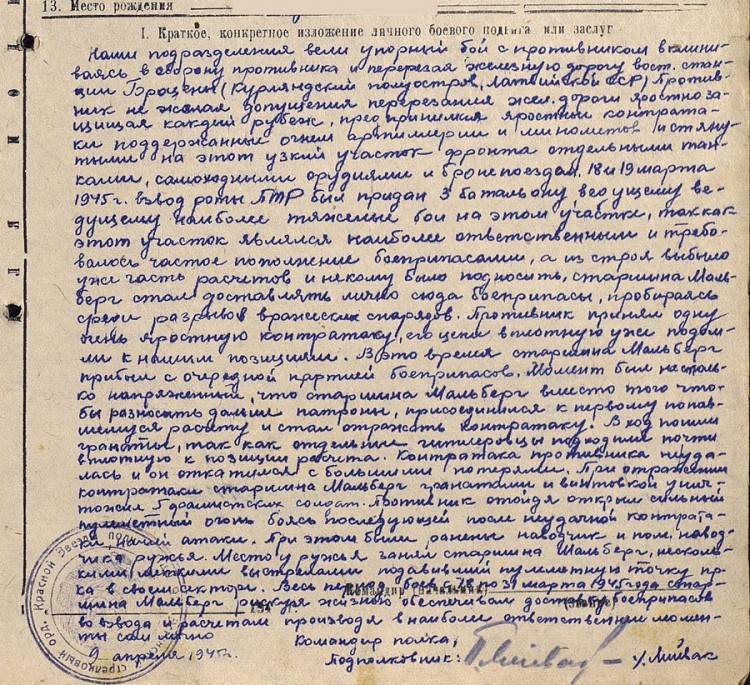 13. Место рождения
I. Краткое, конкретное изложение личного боевого подвига или заслуг
Наши подразделения вели упорный бой с противником вклини-
ваясь в оборону противника и перерезая железную дорогу вост. стан-
ции Броцены (Курляндский полуостров, Латвийской ССР) Против-
ник не желая допущения перерезания жел. дороги яростно за-
щищая каждый рубеж, предпринимал яростные контрата-
ки поддержанные огнем артиллерии и минометов и стяну-
тыми на этот узкий участок фронта отдельными тан-
ками, самоходными орудиями и бронепоездом. 18 и 19 марта
1945 г. взвод роты ПТР был придан 3 батальону ве-
дущему наиболее тяжелые бои на этом участке, так как
этот участок являлся наиболее ответственным и требо-
валось частое пополнение боеприпасами, а из строя выбыло
уже часть расчетов и некому было подносить, старшина Маль-
берг стал доставлять лично сюда боеприпасы, пробираясь
среди разрывов вражеских снарядов. Противник принял одну
очень яростную контратаку, его цепи вплотную уже подош-
ли к нашим позициям. В это время старшина Мальберг
прибыл с очередной партией боеприпасов. Момент был настоль-
ко напряженный, что старшина Мальберг вместо того что-
бы разносить дальше патроны, присоединился к первому попав-
шемуся расчету и стал отражать контратаку. В ход пошли
гранаты, так как отдельные гитлеровцы подходили почти
вплотную к позиции расчета. Контратака противника неуда-
лась и он откатился с большими потерями. При отражении
контратаки старшина Мальберг гранатами и винтовкой унич-
тожил солдат. Противник отойдя открыл сильный
пулеметный огонь боясь последующей после неудачной контрата-
ки, нашей атаки. При этом были ранены наводчик и пом. навод-
чика ружья. Место у ружья занял старшина Мальберг, несколь-
кими меткими выстрелами подавивший пулеметную точку пр-
ка в своем секторе. Весь период боев с по марта 1945 года стар-
шина Мальберг рискуя жизнью обеспечивал доставку боеприпасов
во взвода и расчетам производя в наиболее ответственные момен-
ты сам лично
Командир (начальник)
Командир полка,
9 апреля 1945 г.
Подполковник:
/Ливак
стрелковый орд. Красной Звезды